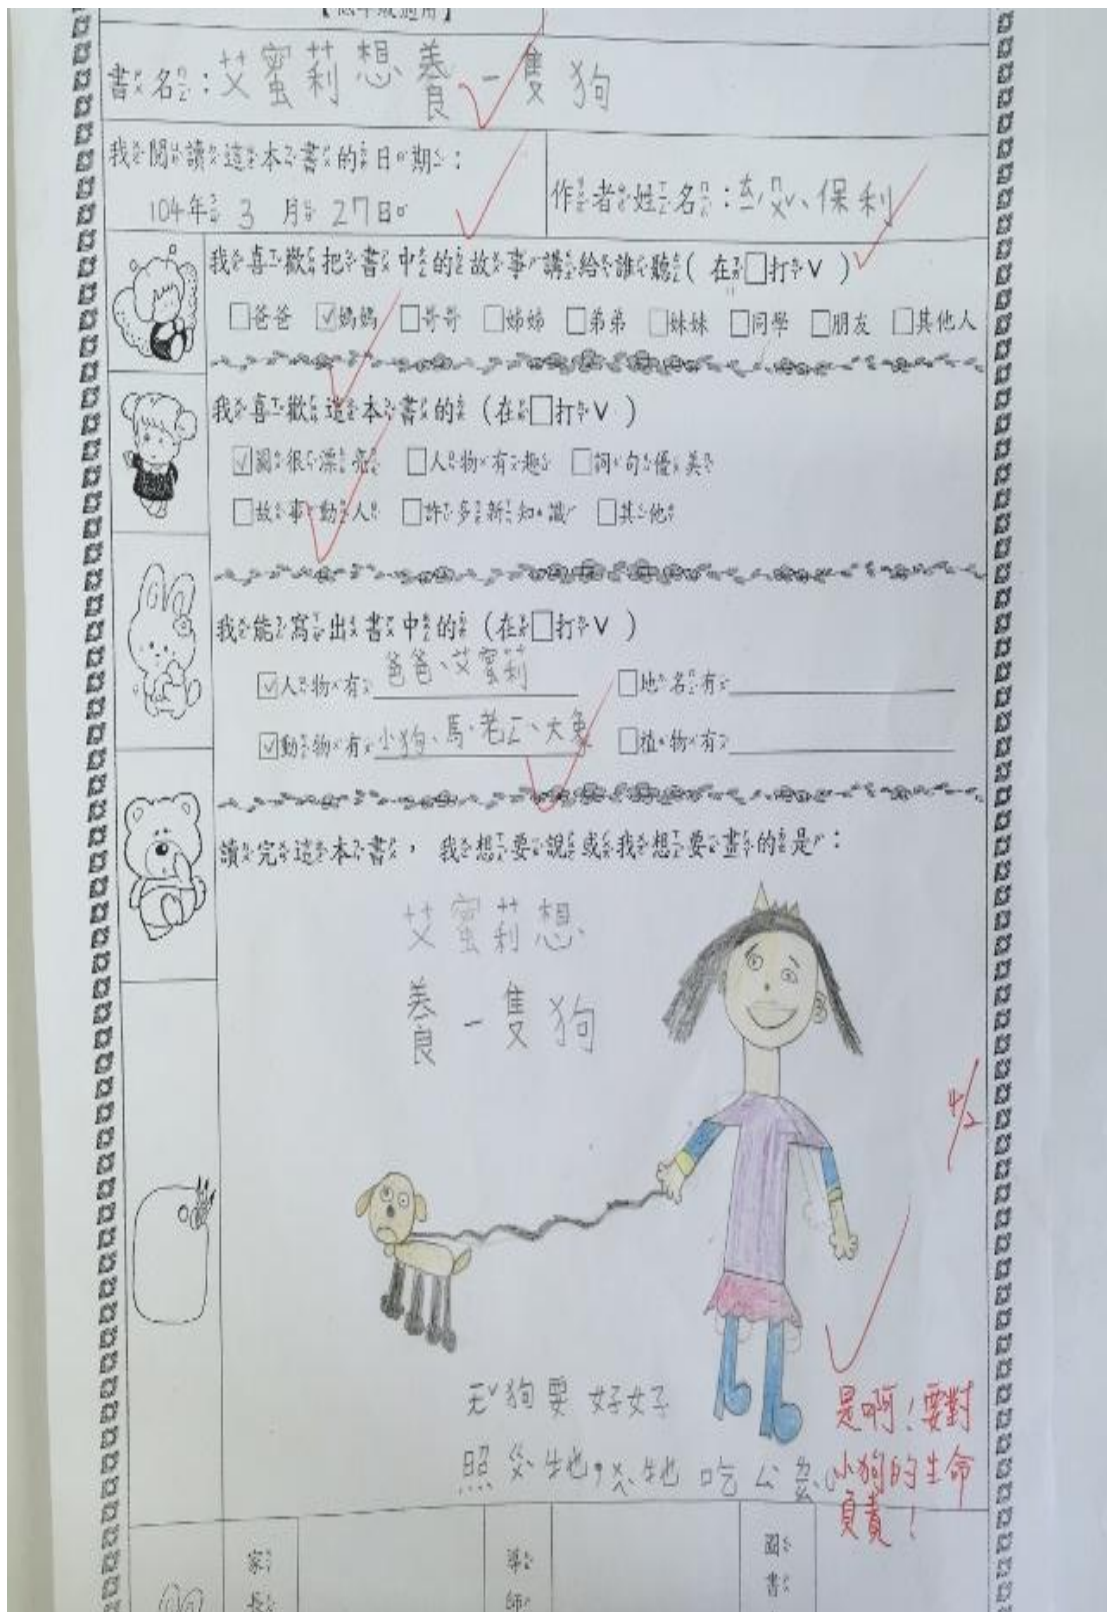 書名：艾蜜莉想養一隻狗
我閱讀這本書的日期：
104年3月27日
作者姓名：ㄊㄤㄇㄨˇ、保利
我喜歡把書中的故事講給誰聽（在□打ˇ）
□爸爸 ☑媽媽 □哥哥 □姊姊 □弟弟 □妹妹 □同學 □朋友 □其他人
我喜歡這本書的（在□打ˇ）
☑圖很漂亮 □人物有趣 □詞句優美
□故事動人 □許多新知識 □其他
我能寫出書中的（在□打ˇ）
☑人物有 爸爸、艾蜜莉 □地名有
☑動物有 小狗、馬、老 □植物有
讀完這本書，我想要說或我想要畫的是：
艾蜜莉想
養一隻狗
狗要好好
照 牠， 牠吃
是啊！要對
小狗的生命
負責！
4/2
家長
導師
圖書